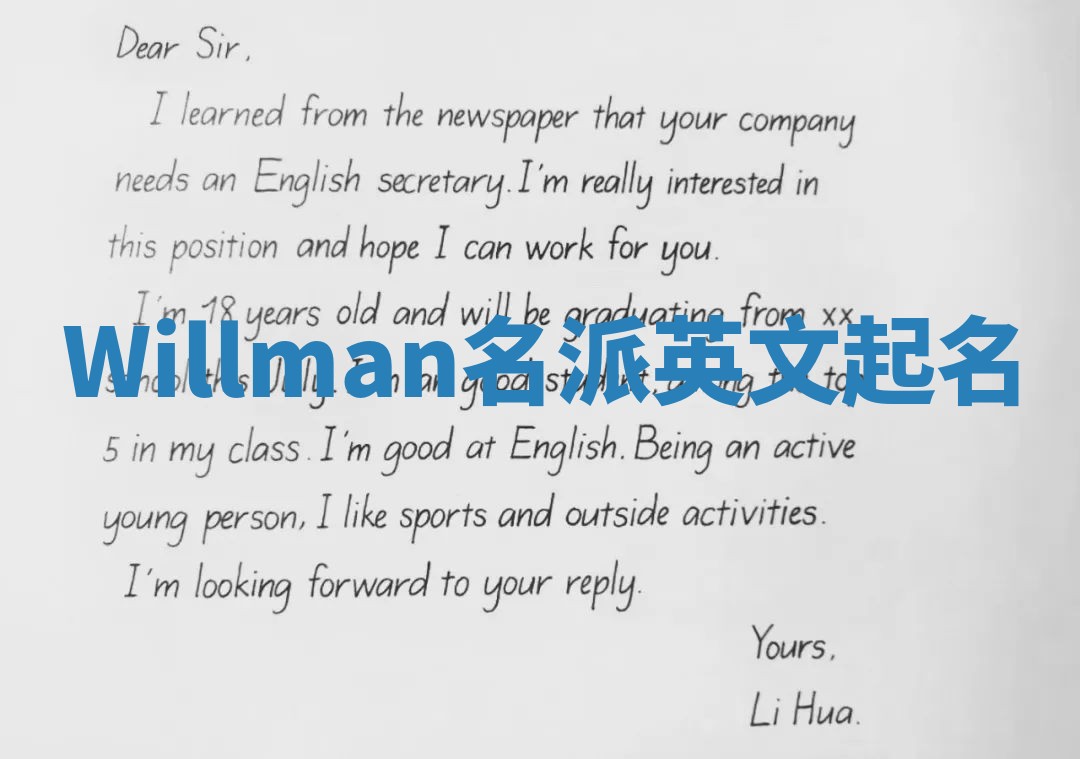 Dear Sir,
I learned from the newspaper that your company
needs an English secretary. I'm really interested in
this position and hope I can work for you.
I'm 18 years old and will be graduating from xx
Willman名派英文起名
school this July. I'm an good student, among the top
5 in my class. I'm good at English. Being an active
young person, I like sports and outside activities.
I'm looking forward to your reply.
Yours,
Li Hua.